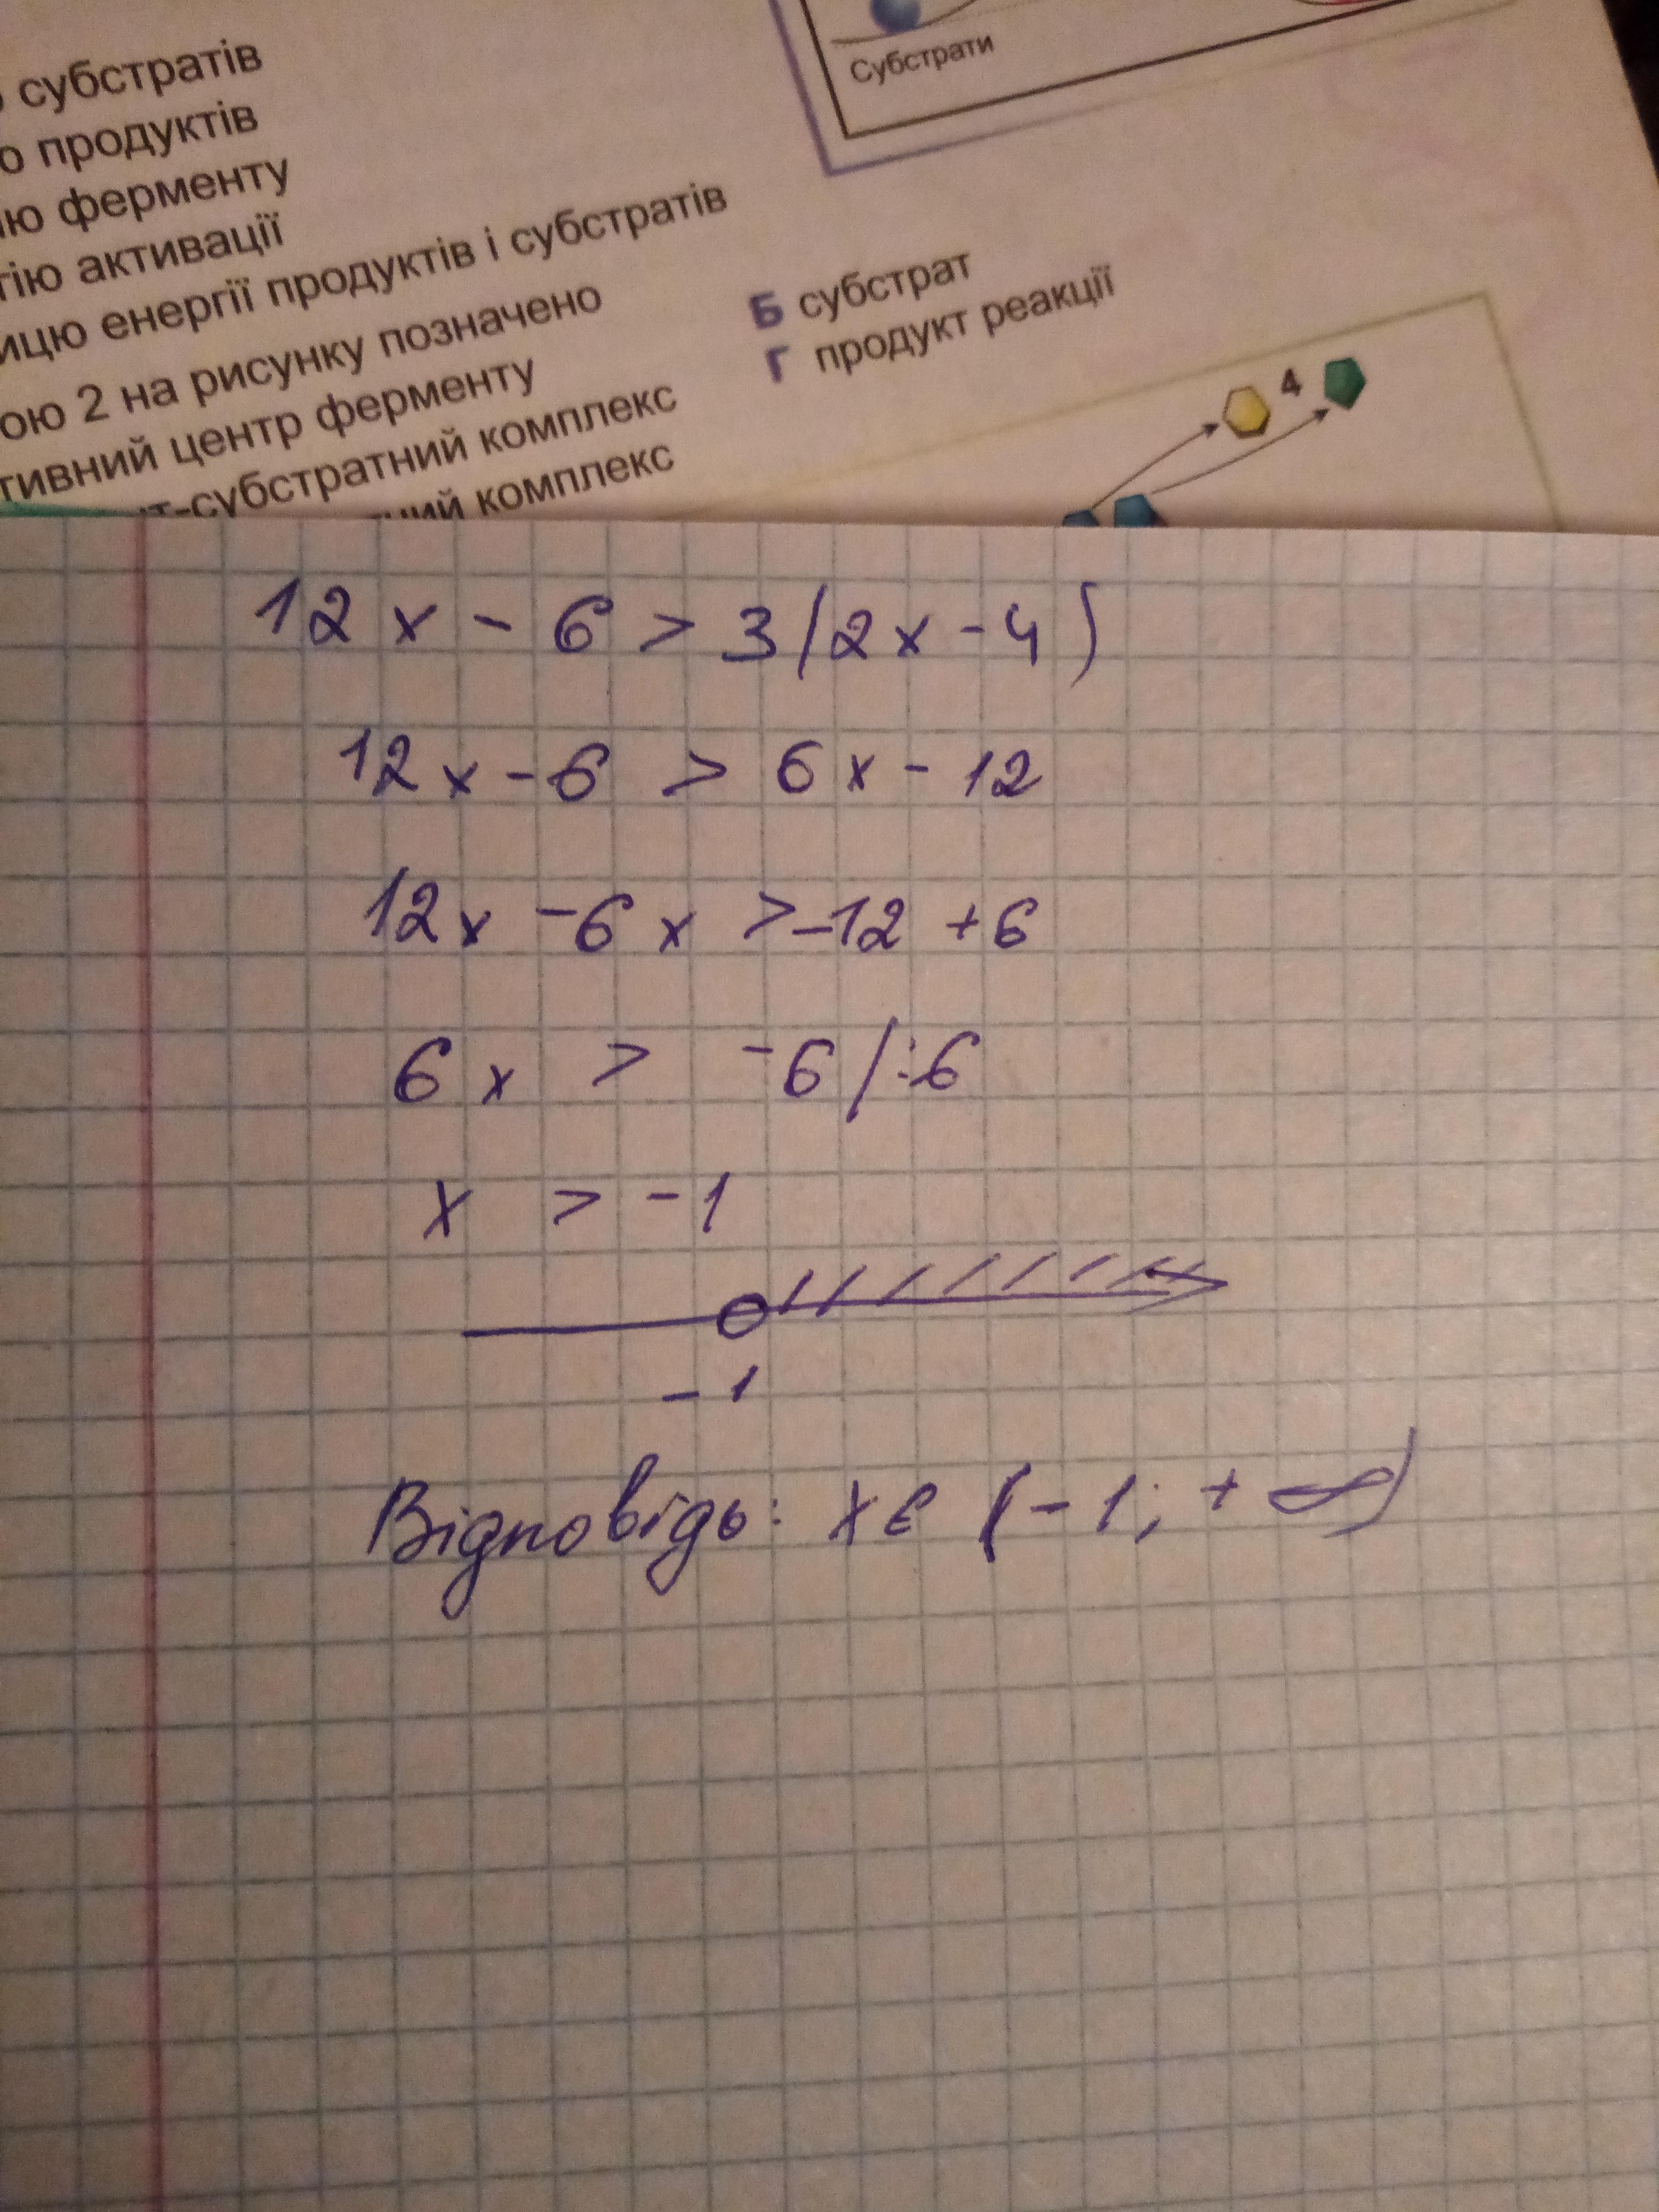 субстратів
продуктів
ферменту
активації
енергії продуктів і субстратів
2 на рисунку позначено
центр ферменту
-субстратний комплекс
комплекс
Субстрати
Б субстрат
Г продукт реакції
4
12x - 6 > 3(2x - 4)
12x - 6 > 6x - 12
12x - 6x > -12 + 6
6x > -6 /:6
x > -1
-1
Відповідь: x є (-1; +∞)